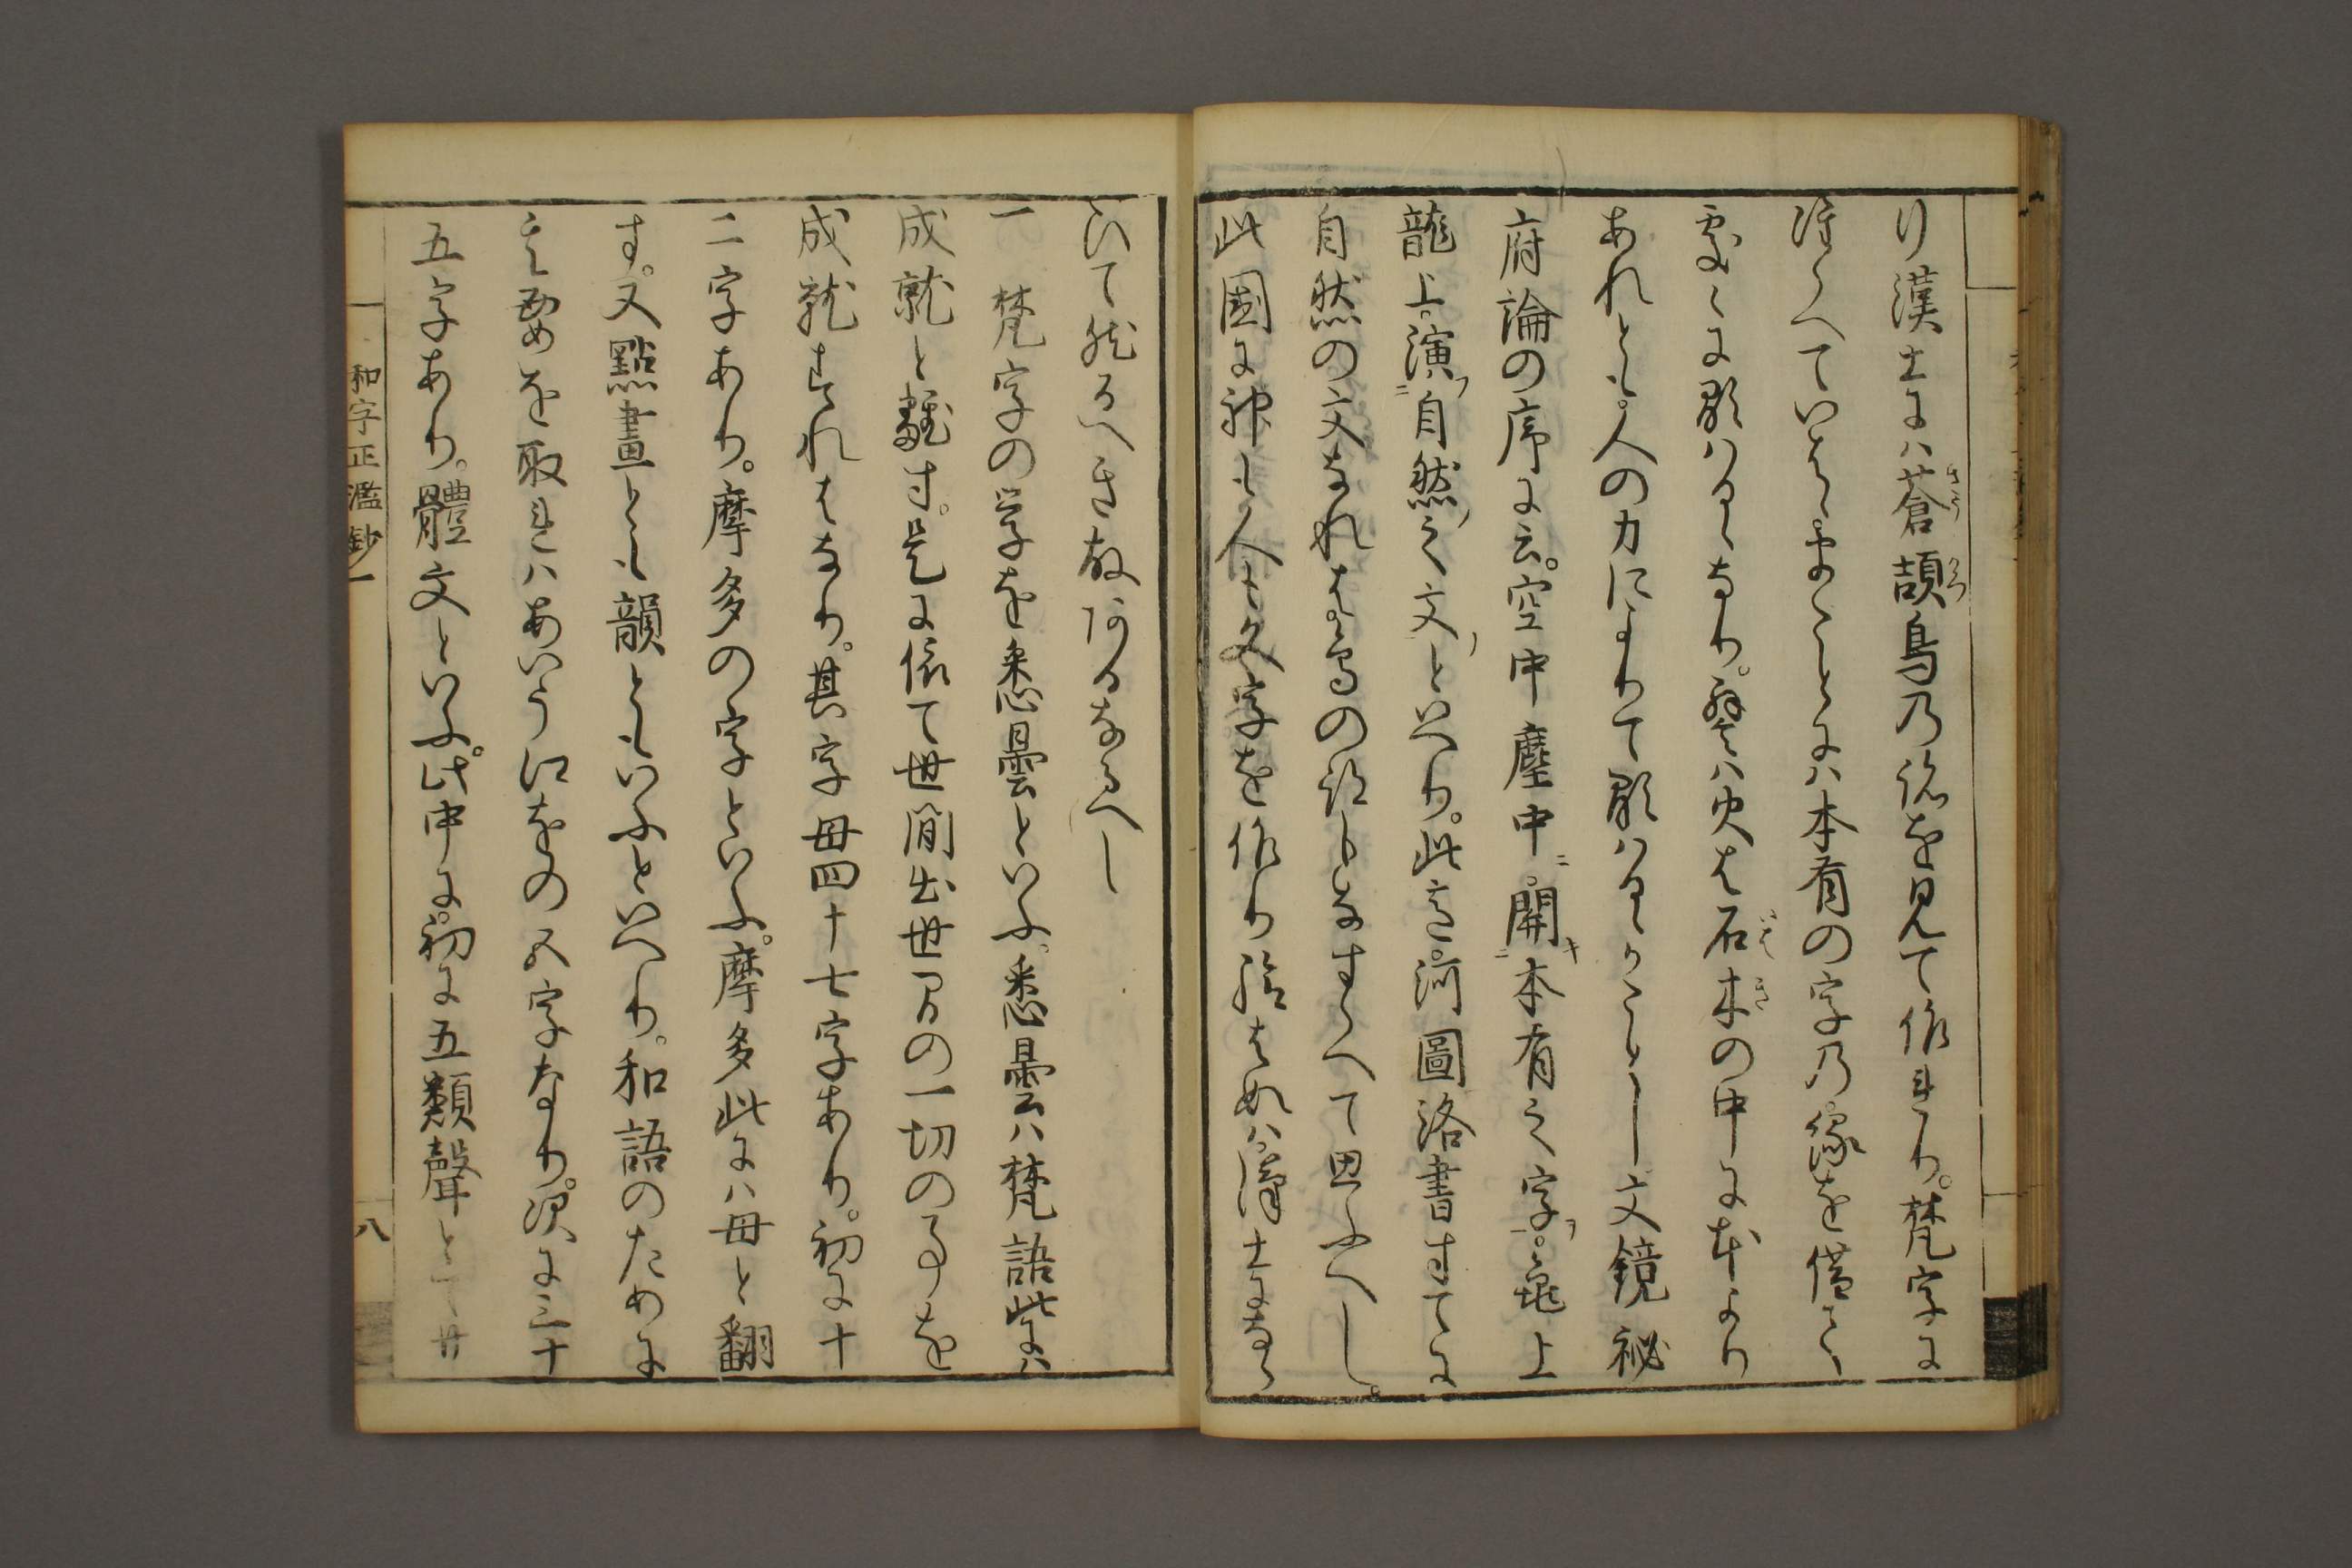 り漢土には蒼頡鳥の跡を見て作れり。梵字に
准らへていはゝまことには本有の字の縁を借て
処々に顕はるゝなり。譬は火は石木の中に本より
あれとも。人の力によりて顕はるゝかことし文鏡祕
府論の序に云。空中塵中。開本有之字。龜上
龍上。演自然之文といへり。此意。河圖洛書すてに
自然の文なれは。鳥の跡もなすらへて思ふへし。
此國に神も人も文字を作り給はぬは漢土になら
ひて然るへき故あるなるへし
一 梵字の字を悉曇といふ。悉曇は梵語此には
成就と翻す。是に依て世間出世間の一切の事を
成就すれはなり。其字母四十七字あり。初に十
二字あり。摩多の字といふ。摩多此には母と翻
す。又點畫とも韻ともいふといへり。和語のために
其要を取れはあいうえをの五字なり。次に三十
五字あり。體文といふ。此中に。初に五類聲とて廿
和字正濫鈔一
八